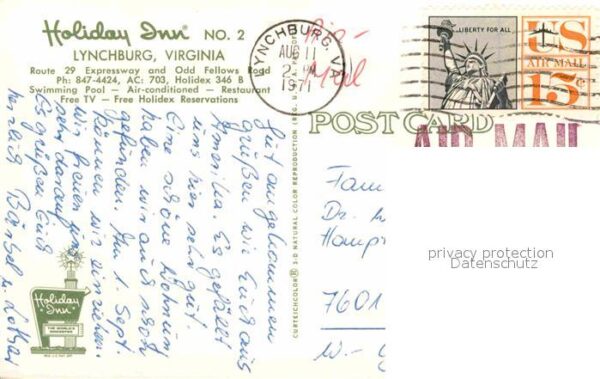 Holiday Inn NO. 2
LYNCHBURG, VIRGINIA
Route 29 Expressway and Odd Fellows Road
Ph: 847-4424, AC: 703, Holidex 346 B
Swimming Pool — Air-conditioned — Restaurant
Free TV — Free Holidex Reservations
LYNCHBURG, VA
AUG 11
2 PM
1971
Air-
Mail
LIBERTY FOR ALL
US
AIR MAIL
15¢
POST CARD
AIR MAIL
Gut angekommen
grüßen wir Euch aus
Amerika. Es gefällt
uns hier sehr gut.
Eine schöne Wohnung
haben wir auch schon
gefunden. Am 1. Sept.
können wir einziehen.
Wir freuen uns
sehr darauf.
Es grüßen Euch
herzlich Bärbel u. Lothar
Holiday
Inn
THE WORLD'S
INNKEEPER
CURTEICHCOLOR ® 3-D NATURAL COLOR REPRODUCTION
Fam
Dr.
Haup
7601
W.-
privacy protection
Datenschutz